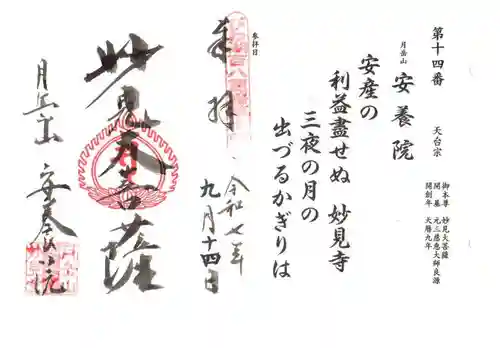 第十四番
天台宗
御本尊 妙見大菩薩
開基 元三慈恵大師良源
開創年 天暦九年
月岳山
安養院
安産の
利益盡せぬ 妙見寺
三夜の月の
出づるかぎりは
参拝日
奉拝
令和七年
九月十四日
妙見大菩薩
月岳山 安養院